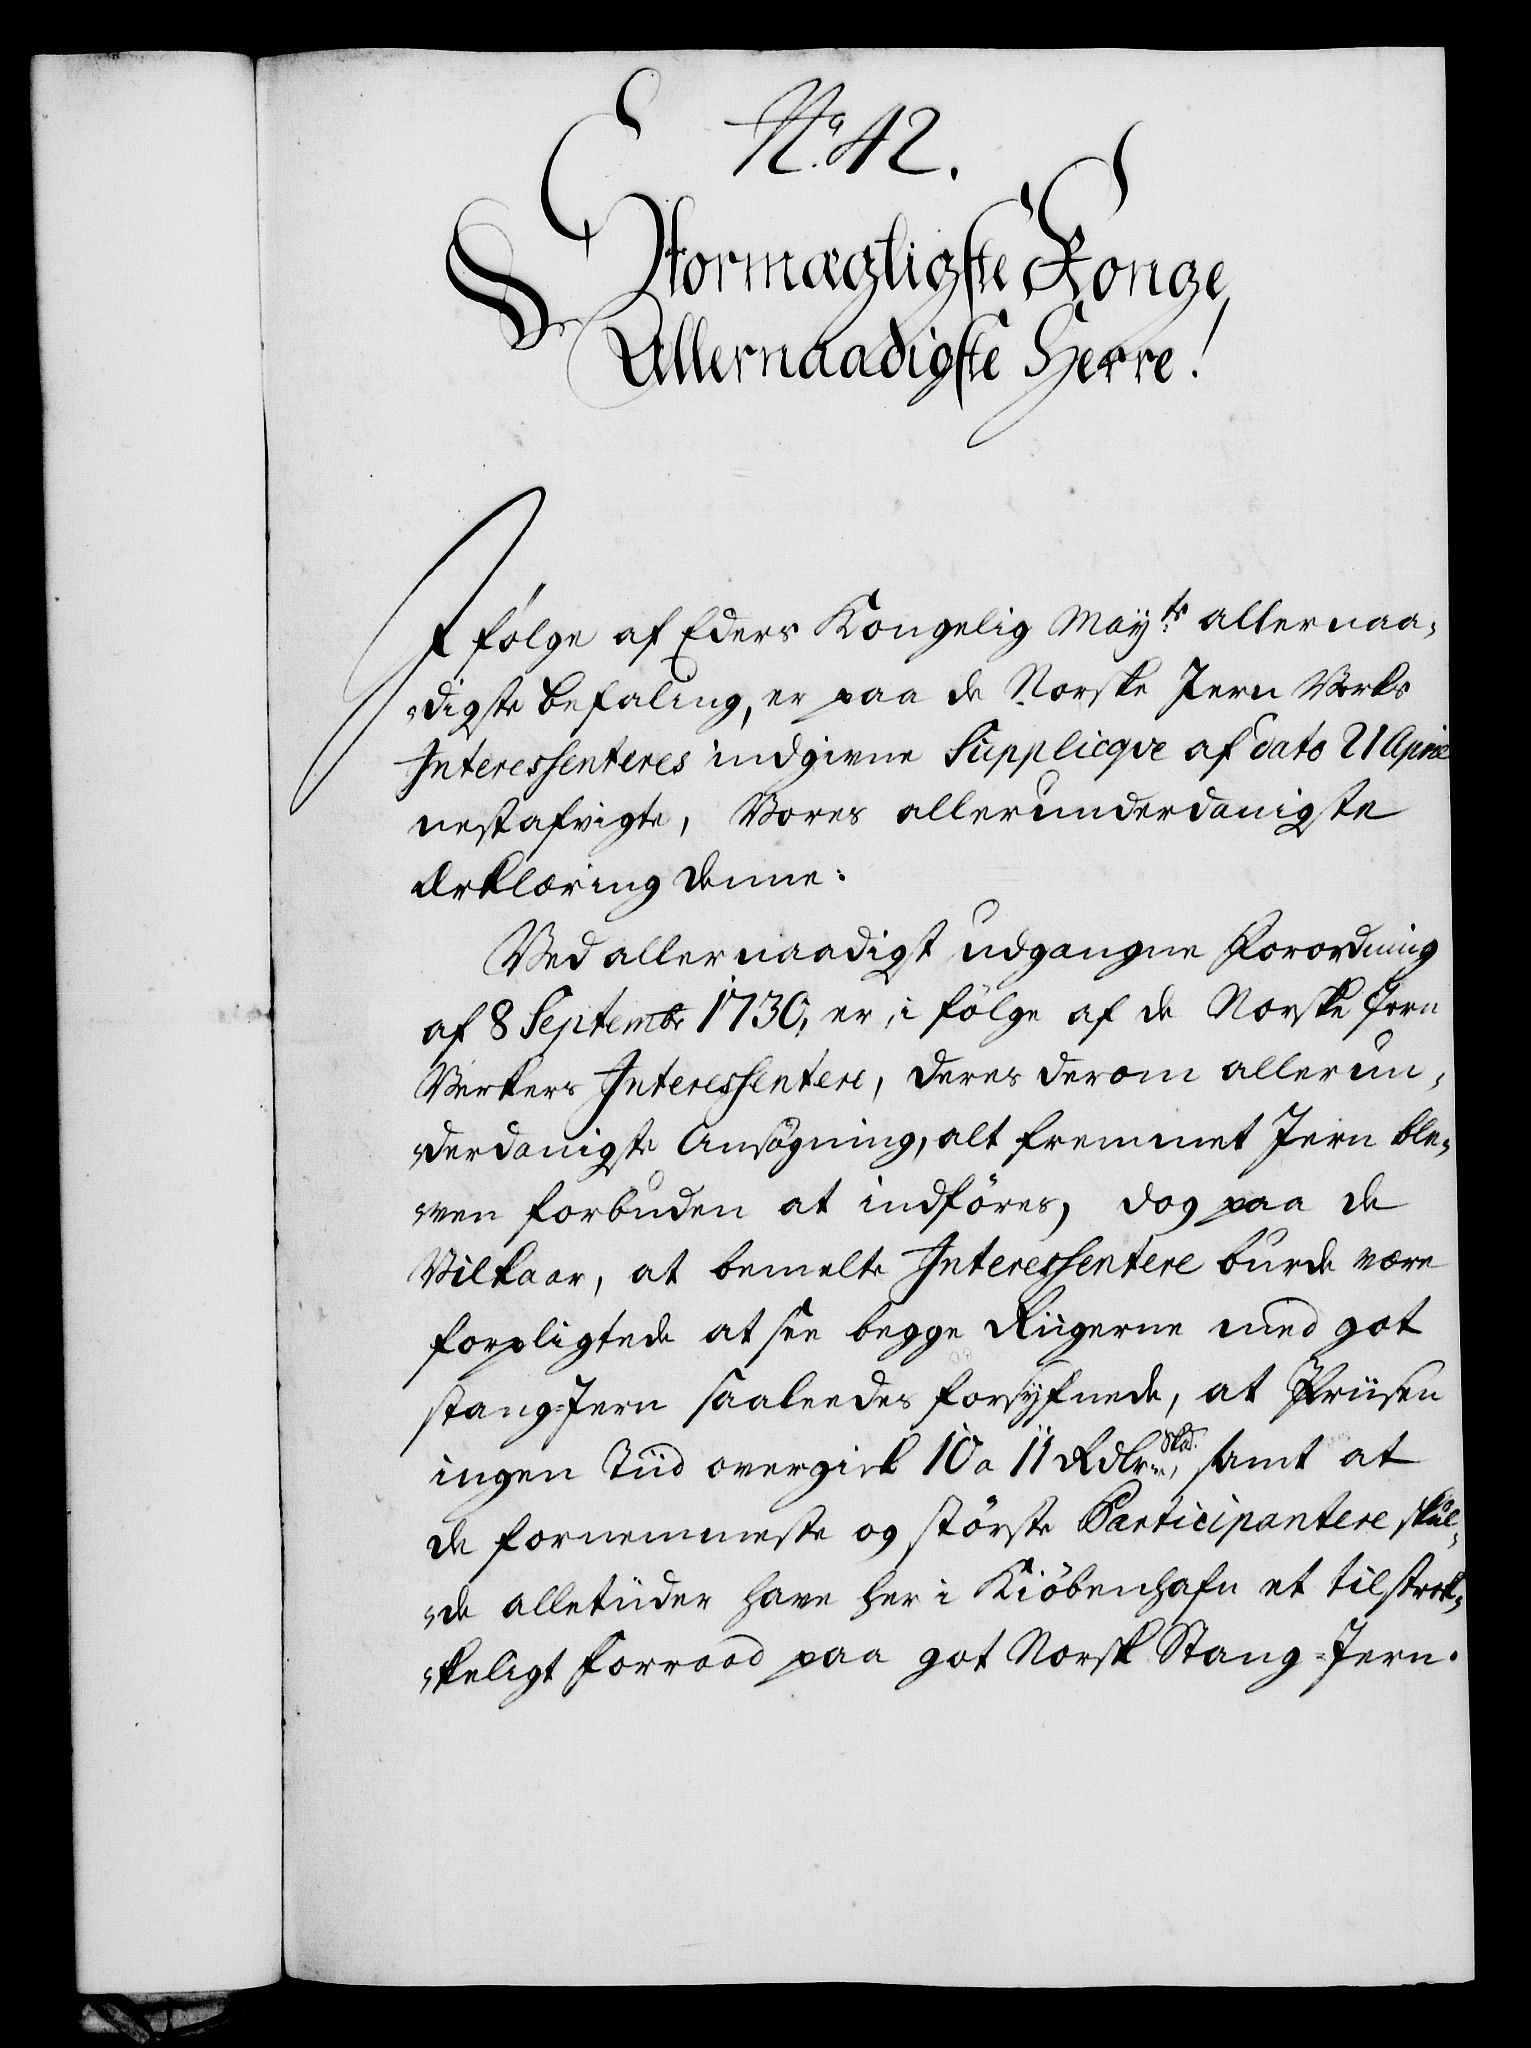 No. 42.
Stormægtigste Konge,
Allernaadigste Herre!
I følge af Eders Kongelig Mayts allernaa-
digste befaling, er paa de Norske Jern Verks
Interessenteres indgivne Supplicqve af dato 21 April
nestafvigte, Vores allerunderdanigste
Erklæring denne:
Ved allernaadigst udgangne Forordning
af 8 Septembr 1730, er, i følge af de Norske Jern
Verkers Interessentere, deres derom allerun-
derdanigste Ansøgning, alt fremmet Jern ble-
ven forbuden at indføres, dog paa de
Vilkaar, at bemelte Interessentere burde være
forpligtede at see begge Riigerne med got
stang-Jern saaleedes forsyfnede, at Priisen
ingen Tiid overgik 10 a 11 Rdlr Skd., samt at
de fornemmeste og største Participantere skul-
de alletiider have her i Kiøbenhafn et tilstræk-
keligt Forraad paa got Norsk Stang-Jern.